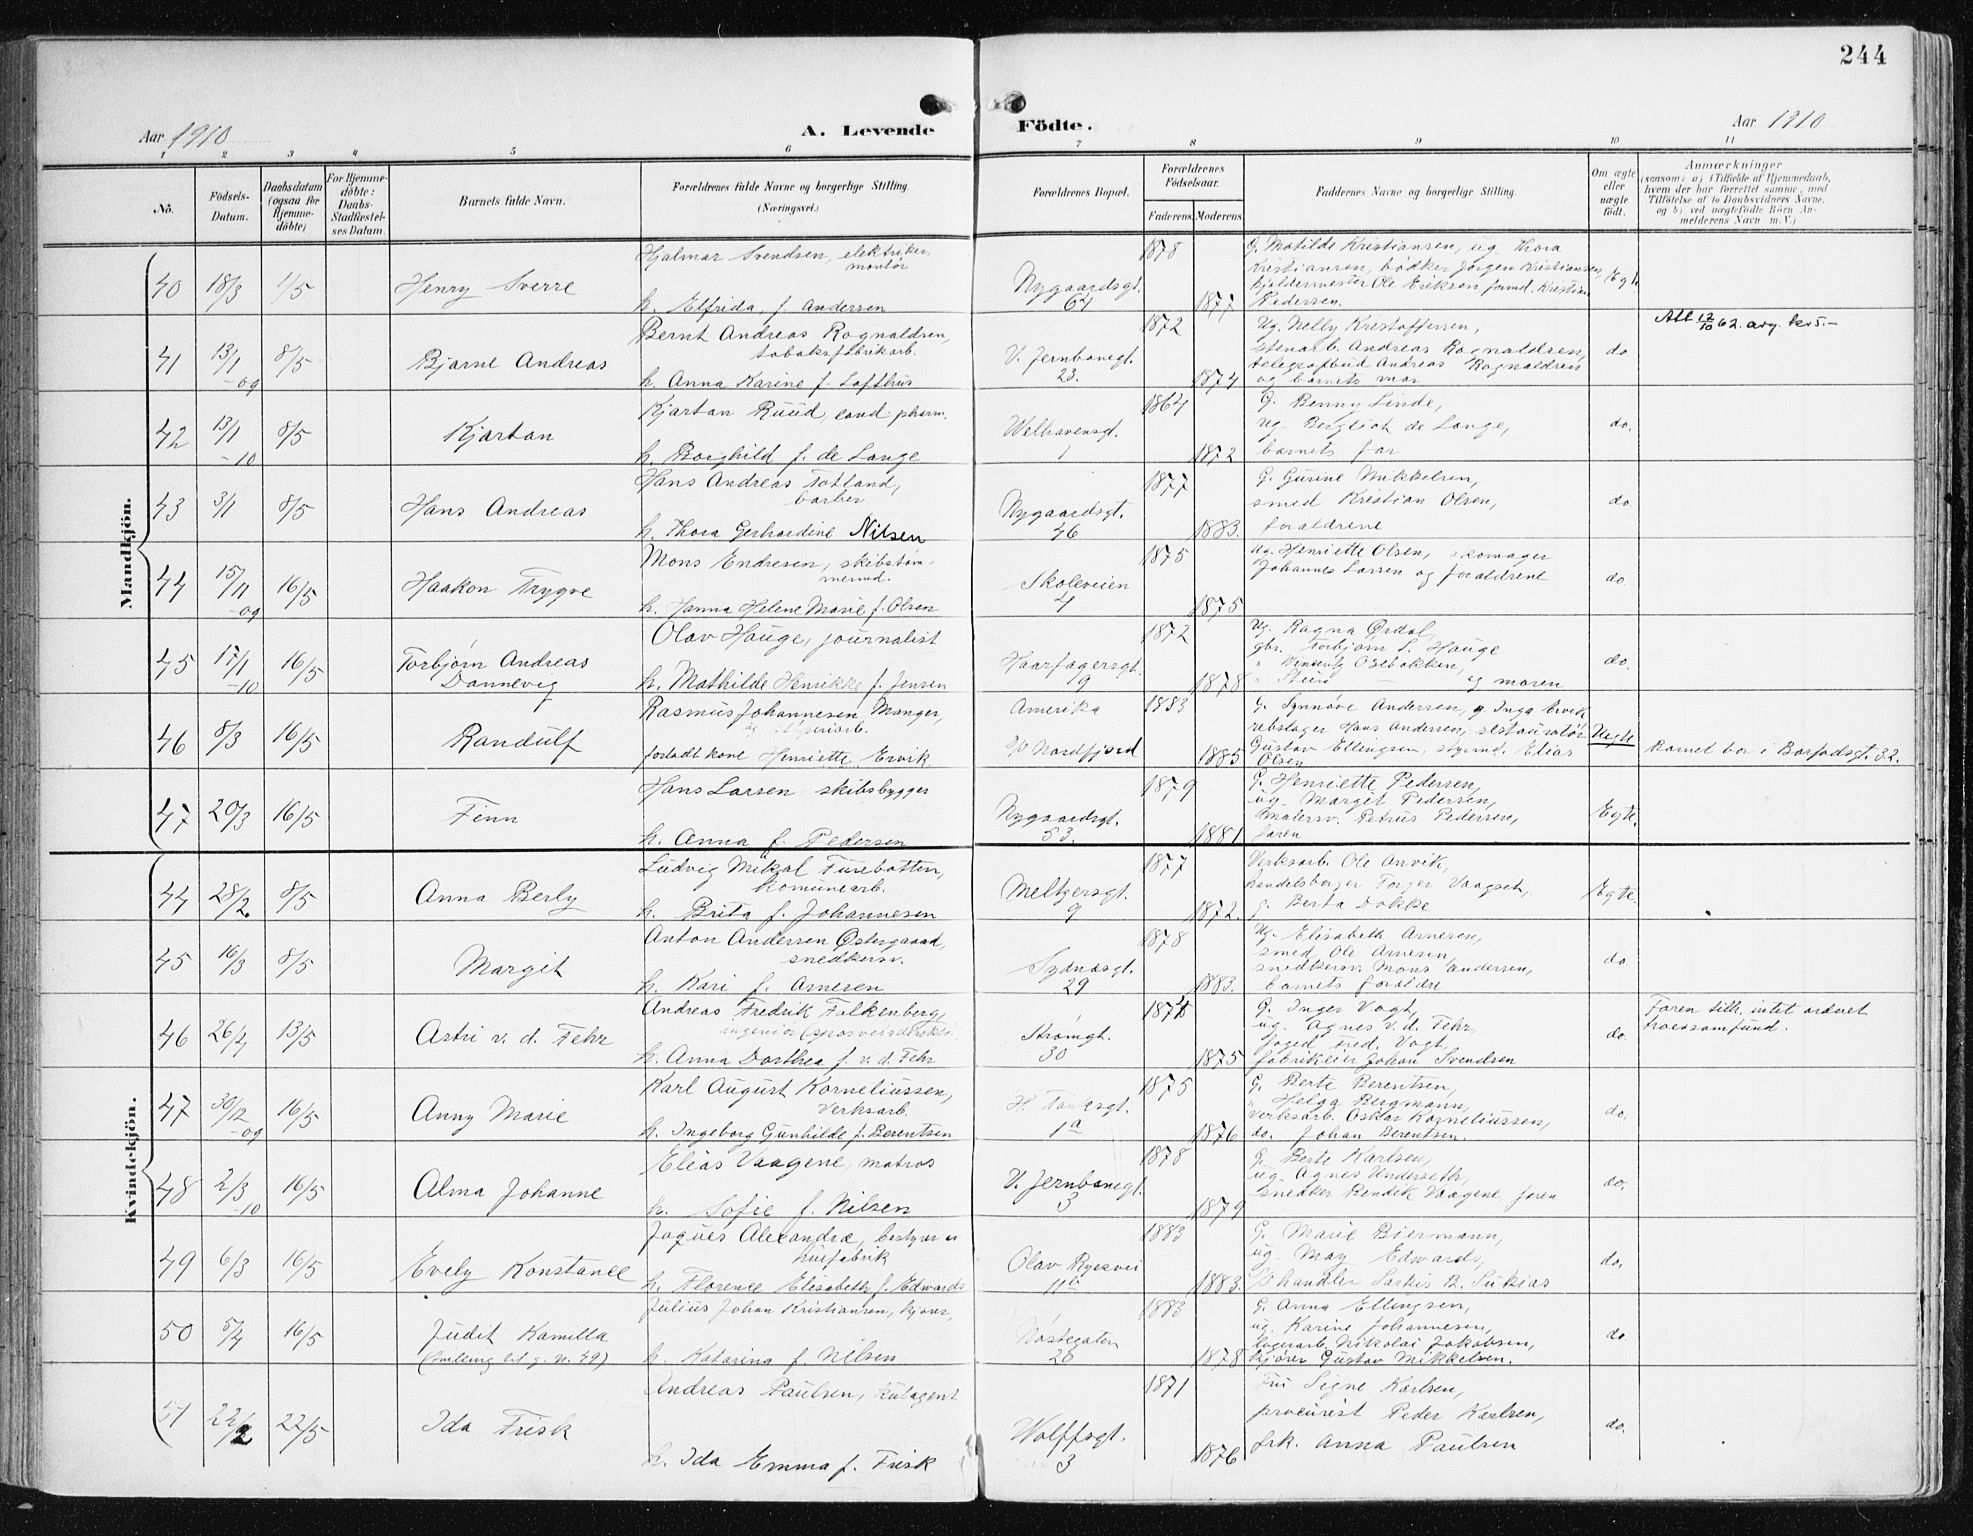 244
Aar 1910
A. Levende Födte.
Aar 1910
1 2 3 4 5 6 7 8 9 10 11
No.
Födsels-
Datum.
Daabsdatum
(ogsaa for
Hjemme-
döbte)
For Hjemme-
döbte:
Daabs-
Stadfæstel-
ses Datum.
Barnets fulde Navn.
Forældrenes fulde Navne og borgerlige Stilling
(Næringsvei.)
Forældrenes Bopæl.
Forældrenes
Födselsaar.
Faderens Moderens
Faddernes Navne og borgerlige Stilling.
Om ægte
eller
uægte
födt.
Anmærkninger
(saasom: a) i Tilfælde af Hjemmedaab,
hvem der har forrettet samme, med
Tilföielse af to Daabsvidners Navne,
og b) ved uægtefödte Börn An-
melderens Navn m. V.)
Mandkjön.
40 18/3 1/5 Henry Sverre
Hjalmar Svendsen, elektriker,
montör
h. Elfrida, f. Andersen
Nygaardsgt.
64
1878
1877
G. Matilde Kristiansen, ug Thora
Kristiansen, bödker Jörgen Kristiansen,
kjeldermester Ole Eriksen formd. Kristian
Pedersen.
Egte
41 13/11 -09 8/5 Bjarne Andreas
Bernt Andreas Rognaldsen,
tobaksfabrikarb.
h. Anna Karine f. Lofthus
V. Jernbanegt.
23.
1872
1874
Ug. Nelly Kristoffersen,
stenarb. Andreas Rognaldsen,
telegrafbud Andreas Rognaldsen
og barnets mor
do
Att 12/10 62. avg. kr 5.-
42 13/1 -10 8/5 Kjartan
Kjartan Ruud, cand. pharm.
h. Borghild f. de Lange
Welhavensgt.
1
1864
1872
G. Benny Linde,
ug Bergliot de Lange,
barnets far
do.
43 3/1 8/5 Hans Andreas
Hans Andreas Totland,
barber
h. Thora Gerhardine Nilsen
Nygaardsgt.
46
1877
1883.
G. Gurine Mikkelsen,
smed Kristian Olsen,
forældrene
do.
44 15/11 -09 16/5 Haakon Trygve
Mons Endresen, skibstöm-
mermd.
h. Hanna Helene Marie f. Olsen
Skoleveien
4
1875
1875
Ug. Henriette Olsen, skomager
Johannes Larsen og forældrene
do.
45 17/1 -10 16/5 Torbjörn Andreas
Dannevig
Olav Hauge, journalist
h. Mathilde Henrikke f. Jensen
Haarfagersgt.
9
1872
1878
Ug. Ragna Ørdal,
gbr. Torbjörn S. Hauge
" Vincentz Osebakken,
" Stein — og moren
do.
46 8/3 16/5 Randulf
Rasmus Johannesen Manger,
forladt kone Henriette Ervik
Amerika
Nordfjord
1883
1885
G. Synnöve Andersen, g. Inga Ervik
rebslager Hans Andersen, restauratör
Gustav Ellingsen, styrmd. Elias
Olsen
Uegte
Barnet bor i Borjadsgt. 32.
47 20/3 16/5 Finn
Hans Larsen, skibsbygger
h. Anna f. Pedersen
Nygaardsgt.
53.
1879
1881
G. Henriette Pedersen,
ug. Margit Pedersen,
malersv. Petrus Pedersen,
faren
Egte.
Kvindekjön.
44 28/2 8/5 Anna Berly
Ludvig Mikal Furebotten,
komunearb.
h. Brita f. Johannesen
Meltzersgt.
9
1877
1872.
Verksarb. Ole Anvik,
handelsborger Torger Vaagset,
g. Berta Dokke
Egte.
45 16/3 8/5 Margit
Anton Andersen Østergaard,
snedkersv.
h. Kari f. Arnesen
Sydnæsgt.
29
1878
1883.
Ug. Elisabeth Arnesen,
smed Ole Arnesen,
snedkersv. Mons Andersen,
barnets forældre
do.
46 26/4 13/5 Astri v. d. Fehr
Andreas Fredrik Falkenberg,
ingeniör
h. Anna Dorthea f. v. d. Fehr
Strömgt.
30
1874
1875
G. Inger Vogt,
ug. Agnes v. d. Fehr,
foged Fred. Vogt,
fabrikeier Johan Svendsen
do.
Faren tilh. intet ordnet
troessamfund.
47 30/12 -09 16/5 Anny Marie
Karl August Korneliussen,
verksarb.
h. Ingeborg Gunhilde f. Berentsen
H. Tanksgt.
1a
1875
1876
G. Berte Berentsen,
" Helga Bergmann,
verksarb. Oskar Korneliussen,
do. Johan Berentsen.
do.
48 2/3 -10 16/5 Alma Johanne
Elias Vaagene, matros
h. Sofie f. Nilsen
V. Jernbanegt.
3
1878
1879
G. Berte Karlsen,
ug. Agnes Undersæth,
snedker Bendik Vaagene, faren
do.
49 6/3 16/5 Evely Konstance
Jaques Alexandra, bestyrer
h. Florence Elisabeth f. Edwards
Olav Ryesvei
11b
1883
1883.
G. Marie Biermann,
ug. May Edwards,
handler Sarkis B. Sukias
do.
50 5/4 16/5 Judit Kamilla
(tvilling
Julius Johan Kristiansen, kjører,
h. Katarina f. Nilsen
Nöstegaten
20
1883
1878
G. Anna Ellingsen,
ug. Karine Johannesen,
lagerarb. Nikolai Jakobsen,
kjører Gustav Mikkelsen.
do.
51 22/2 22/5 Ida Frisk
Andreas Paulsen, kulagent
h. Ida Emma f. Frisk
Wolffsgt.
3
1871
1876
Fru Signe Karlsen,
procurist Peder Karlsen,
frk. Anna Paulsen
do.